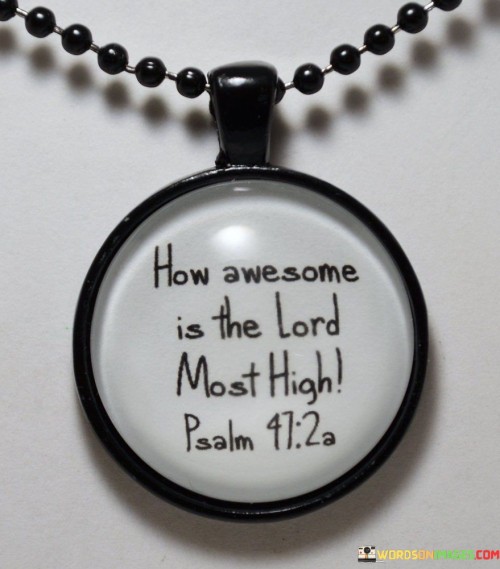 How awesome
is the Lord
Most High!
Psalm 47:2a
WORDSONIMAGES.COM